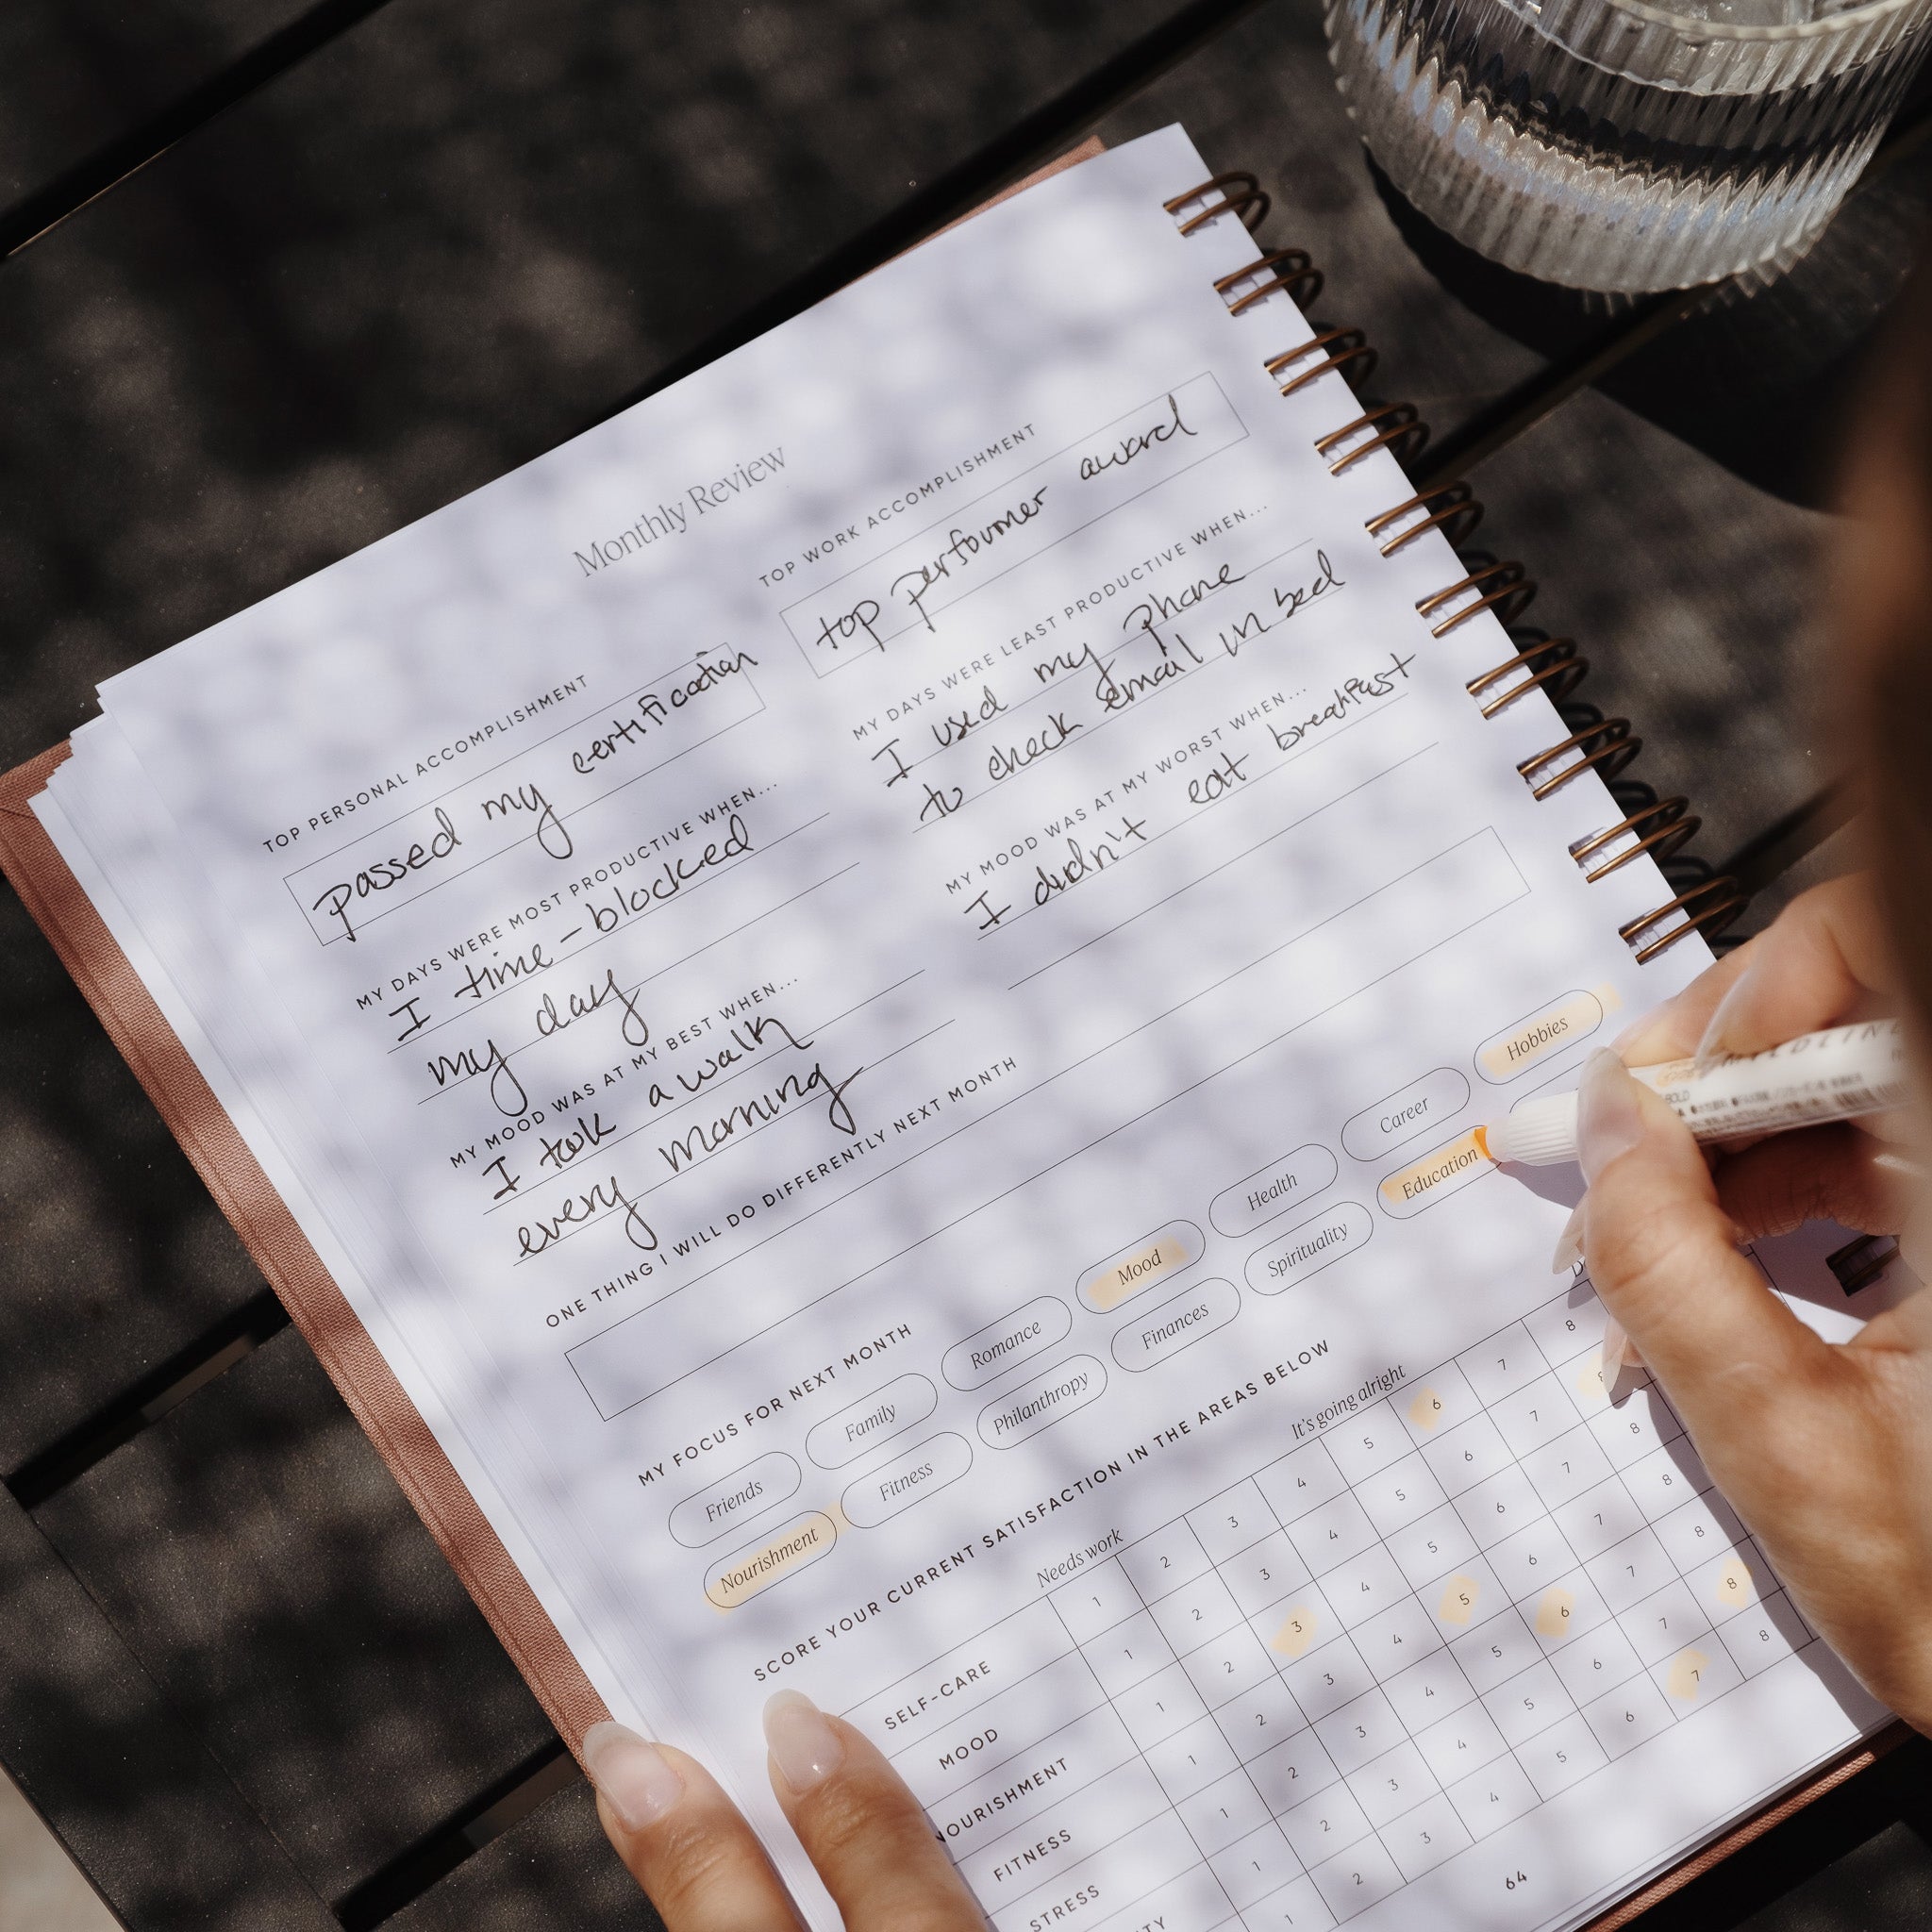 Monthly Review
TOP PERSONAL ACCOMPLISHMENT
passed my certification
TOP WORK ACCOMPLISHMENT
top performer award
MY DAYS WERE MOST PRODUCTIVE WHEN...
I time-blocked
my day
MY DAYS WERE LEAST PRODUCTIVE WHEN...
I used my phone
to check email in bed
MY MOOD WAS AT MY BEST WHEN...
I took a walk
every morning
MY MOOD WAS AT MY WORST WHEN...
I didn't eat breakfast
ONE THING I WILL DO DIFFERENTLY NEXT MONTH
MY FOCUS FOR NEXT MONTH
Friends Family Romance Mood Health Career Hobbies
Nourishment Fitness Philanthropy Finances Spirituality Education
SCORE YOUR CURRENT SATISFACTION IN THE AREAS BELOW
Needs work It's going alright
SELF-CARE 1 2 3 4 5 6 7 8
MOOD 1 2 3 4 5 6 7 8
NOURISHMENT 1 2 3 4 5 6 7 8
FITNESS 1 2 3 4 5 6 7 8
STRESS 1 2 3 4 5 6 7 8
1 2 3 4 5 6 7 8
1 2 3 4 5 6 7 8
64